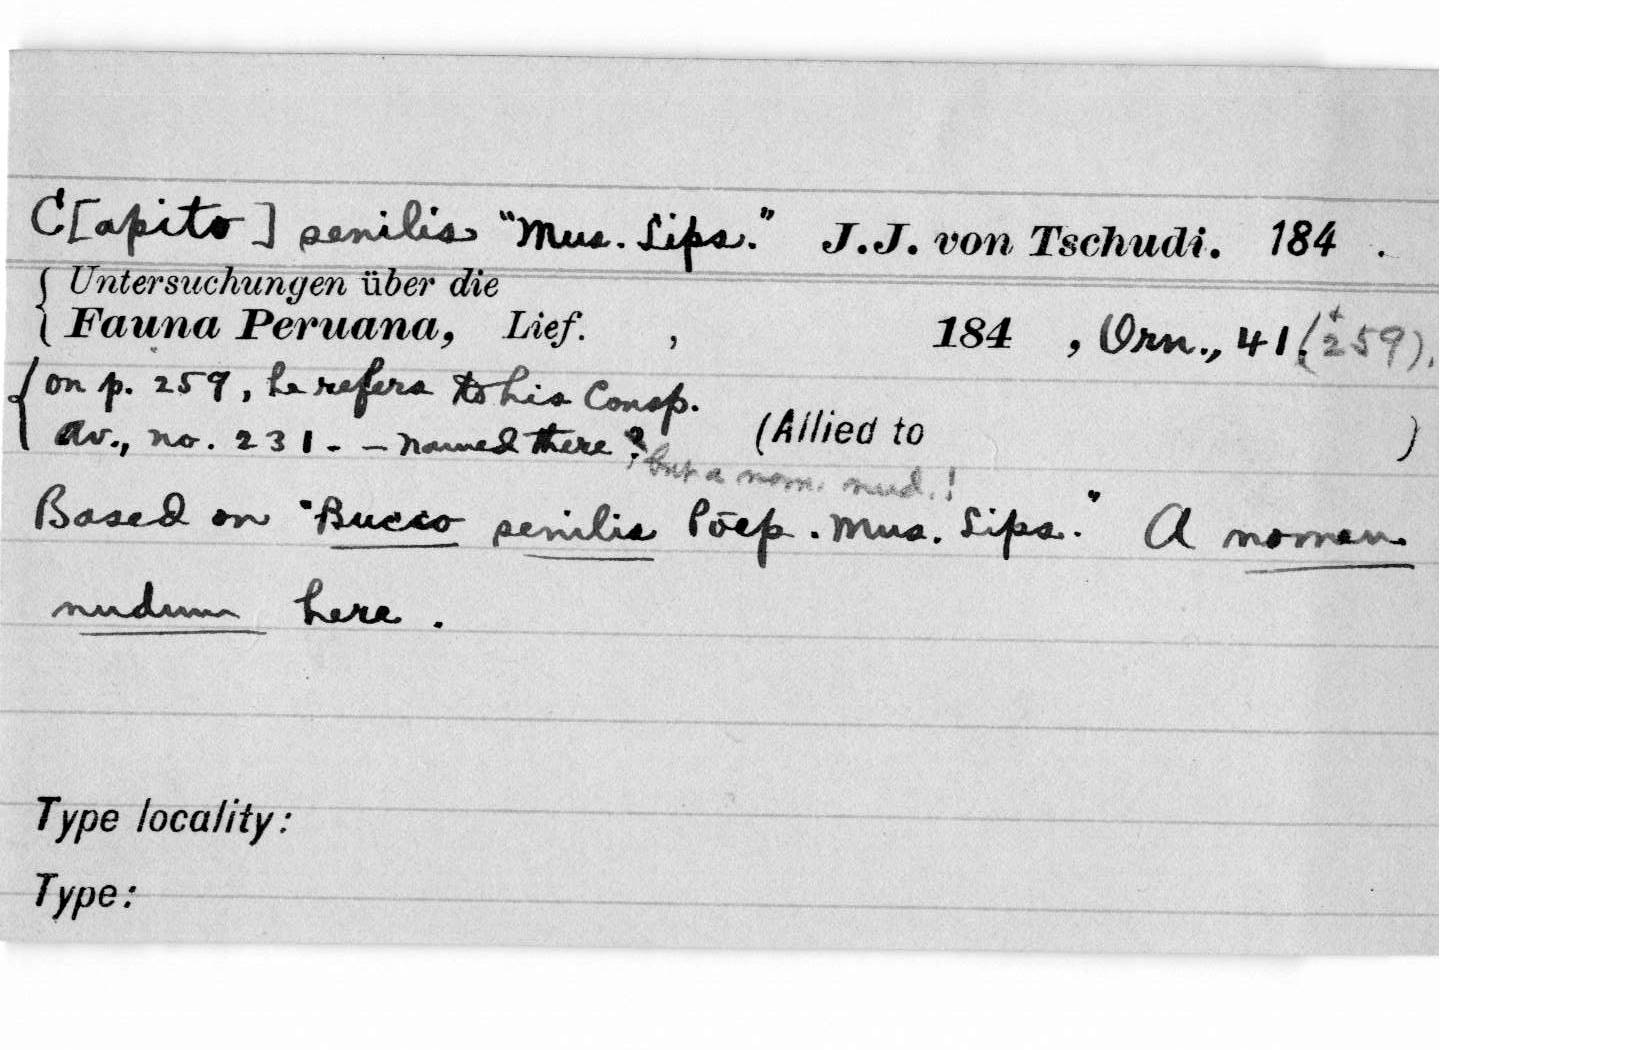 C[apito] senilis "Mus. Lips." J.J. von Tschudi. 184 .
Untersuchungen über die
Fauna Peruana, Lief. , 184 , Orn., 41. (+ 259).
on p. 259, he refers to his Consp.
Av., no. 231. – named there? (Allied to )
but a nom. nud.!
Based on "Bucco senilis Pöep. Mus. Lips." A nomen
nudum here.
Type locality:
Type: